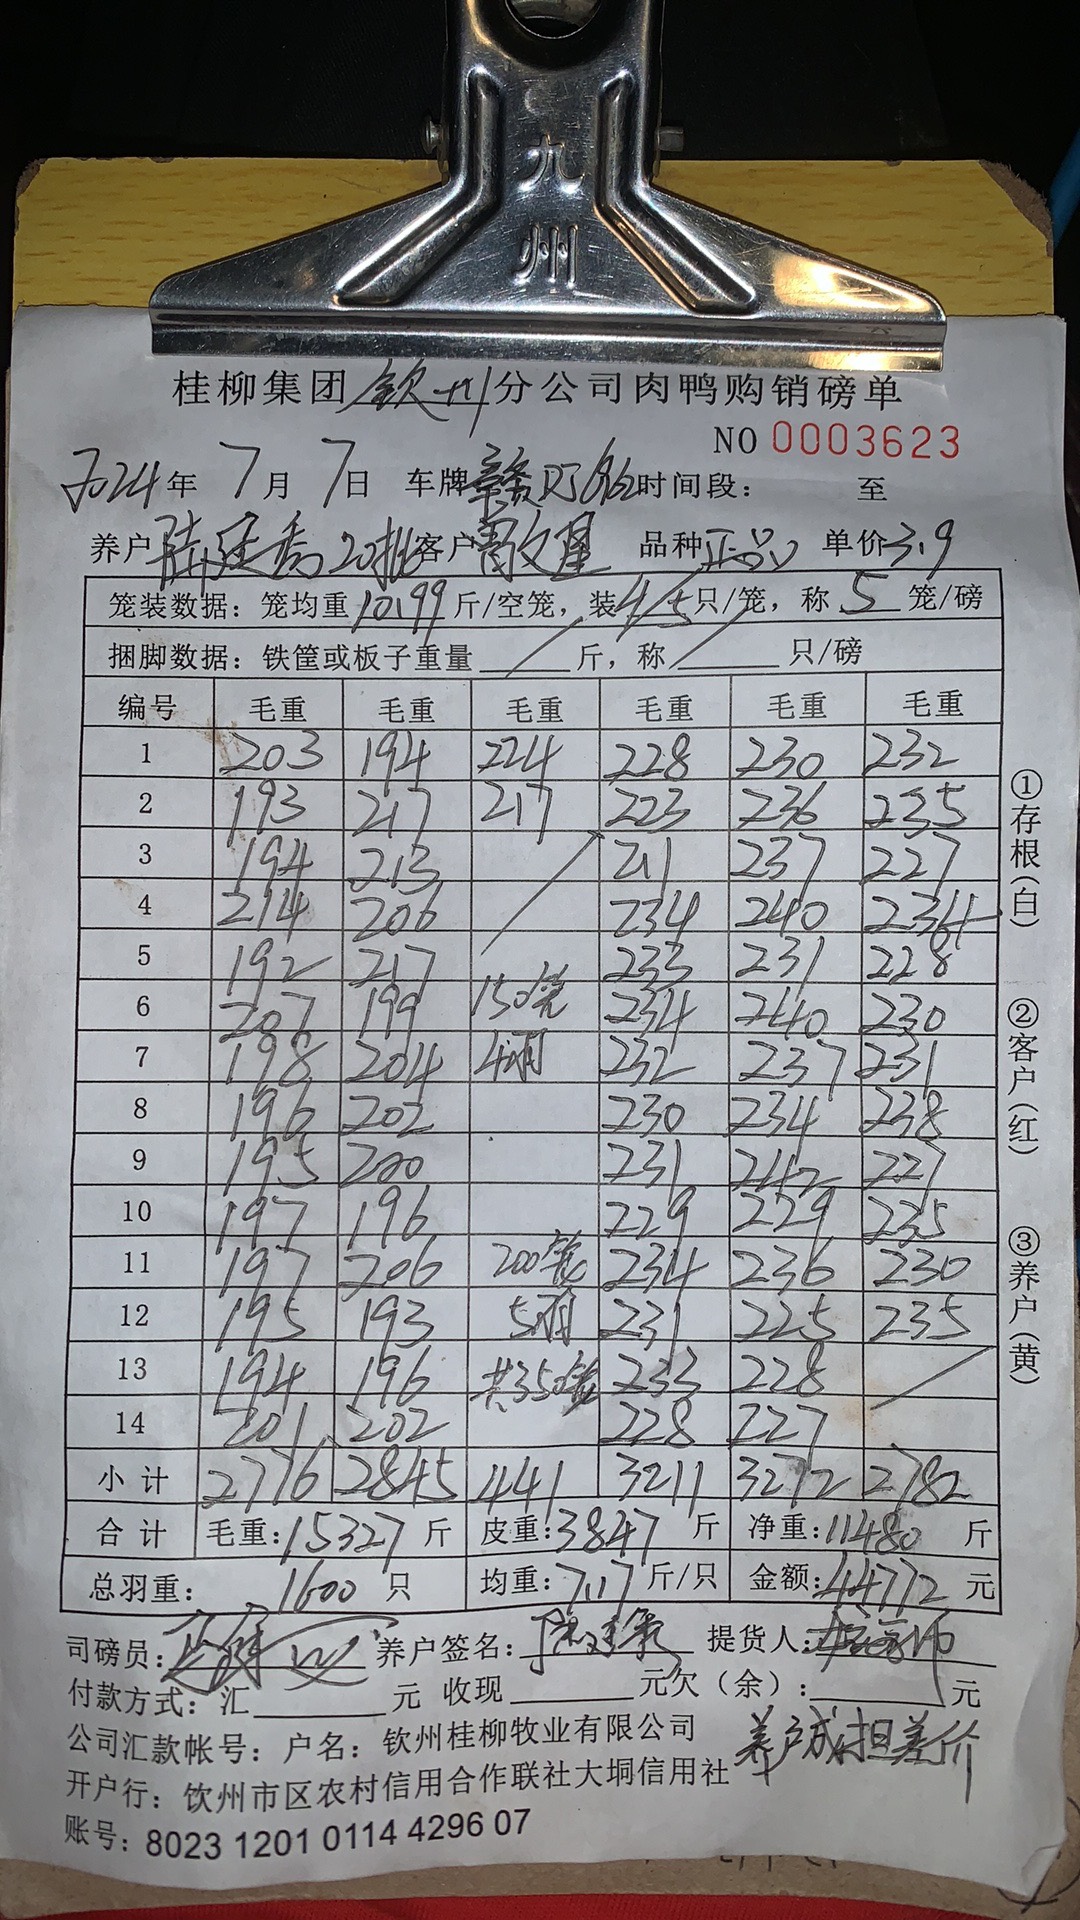 九
州
桂柳集团钦州分公司肉鸭购销磅单
NO 0003623
2024年7月7日 车牌赣 时间段： 至
养户 20批 客户曹文星 品种正品 单价3.9
笼装数据：笼均重10.99斤/空笼，装4/5只/笼，称5笼/磅
捆脚数据：铁筐或板子重量 / 斤，称 / 只/磅
编号 毛重 毛重 毛重 毛重 毛重 毛重
1 203 194 224 228 230 232
2 193 217 217 223 236 235
3 194 213 211 237 227
4 214 206 234 240 234
5 192 217 233 231 228
6 207 199 150笼 234 240 230
7 198 204 4羽 232 237 231
8 196 202 230 234 238
9 195 200 231 242 227
10 197 196 229 229 235
11 197 206 200笼 234 236 230
12 195 193 5羽 231 225 235
13 194 196 共350笼 233 228
14 201 202 228 227
小计 2776 2845 441 3211 3272 2782
合计 毛重：15327斤 皮重：3847斤 净重：11480斤
总羽重：1600只 均重：7.17斤/只 金额：44772元
司磅员： 养户签名： 提货人：
付款方式：汇 元 收现 元欠（余）： 元
公司汇款帐号：户名：钦州桂柳牧业有限公司
养户承担差价
开户行：钦州市区农村信用合作联社大垌信用社
账号：8023 1201 0114 4296 07
①存根（白）
②客户（红）
③养户（黄）